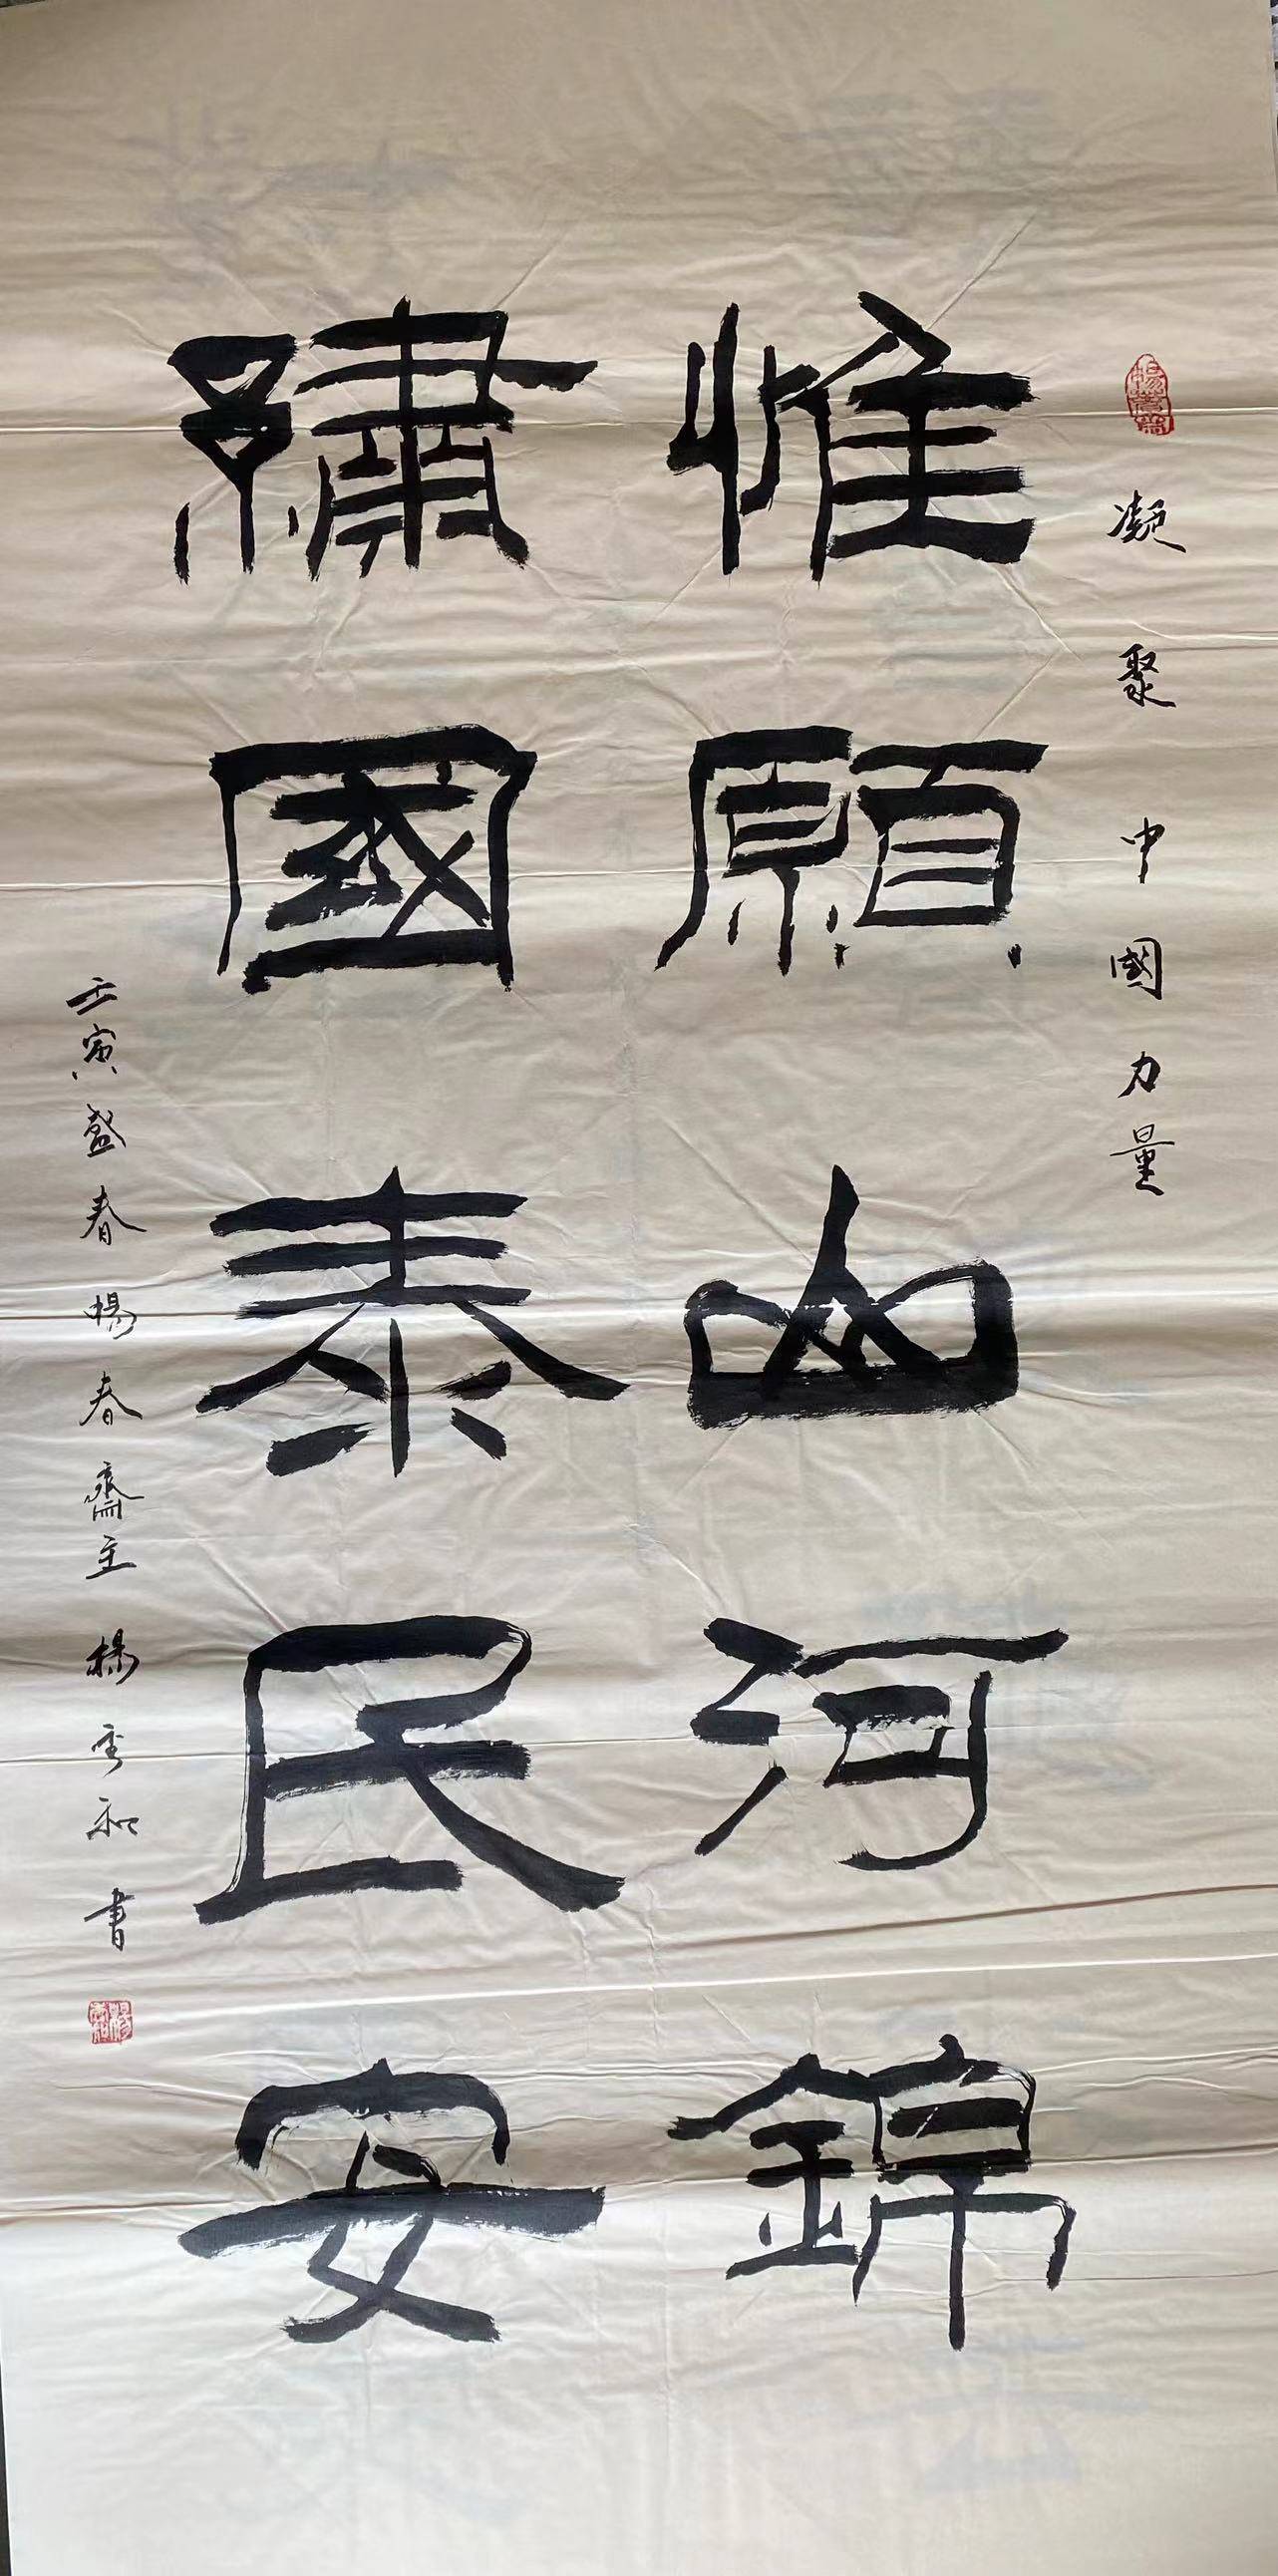 凝聚中國力量
惟願山河錦
繡國泰民安
壬寅盛春暢春齋主楊秀和書